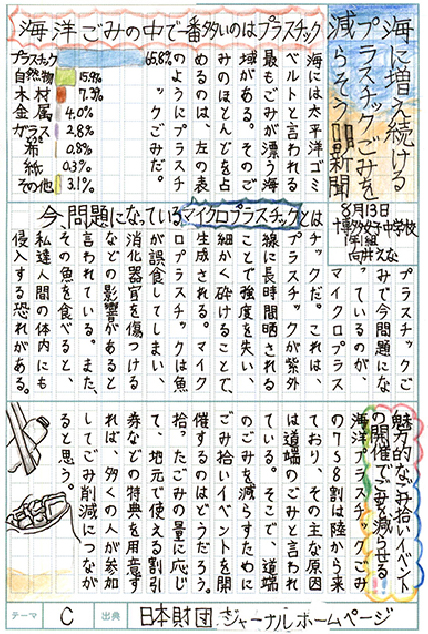 海に増え続ける
プラスチックごみを
減らそう!!!新聞
8月13日
博多女子中学校
向井えな
海洋ごみの中で一番多いのはプラスチック
海には太平洋ゴミ
ベルトと言われる
最もごみが漂う海
域がある。そのご
みのほとんどを占
めるのは、左の表
のようにプラスチ
ックごみだ。
プラスチック 65.8%
自然物 15.9%
木材 7.3%
金属 4.0%
ガラス 2.8%
布 0.8%
紙 0.3%
その他 3.1%
今、問題になっているマイクロプラスチックとは
プラスチックご
みで今問題にな
っているのが、
マイクロプラス
チックだ。これは、
プラスチックが紫外
線に長時間晒される
ことで強度を失い、
細かく砕けることで、
生成される。マイク
ロプラスチックは魚
が誤食してしまい、
消化器官を傷つける
などの影響があると
言われている。また、
その魚を食べると、
私達人間の体内にも
侵入する恐れがある。
魅力的なごみ拾いイベント
の開催でごみを減らせる!!
海洋プラスチックごみ
の7〜8割は陸から来
ており、その主な原因
は道端のごみと言われ
ている。そこで、道端
のごみを減らすために
ごみ拾いイベントを開
催するのはどうだろう。
拾ったごみの量に応じ
て、地元で使える割引
券などの特典を用意す
れば、多くの人が参加
してごみ削減につなが
ると思う。
テーマ C 出典 日本財団ジャーナルホームページ